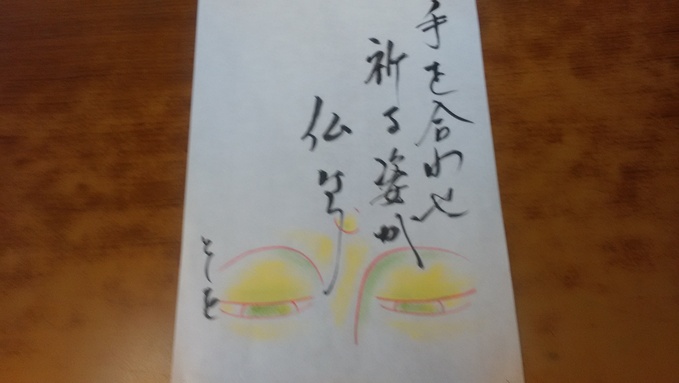 手を合わせ
祈る姿が
仏さま
としを